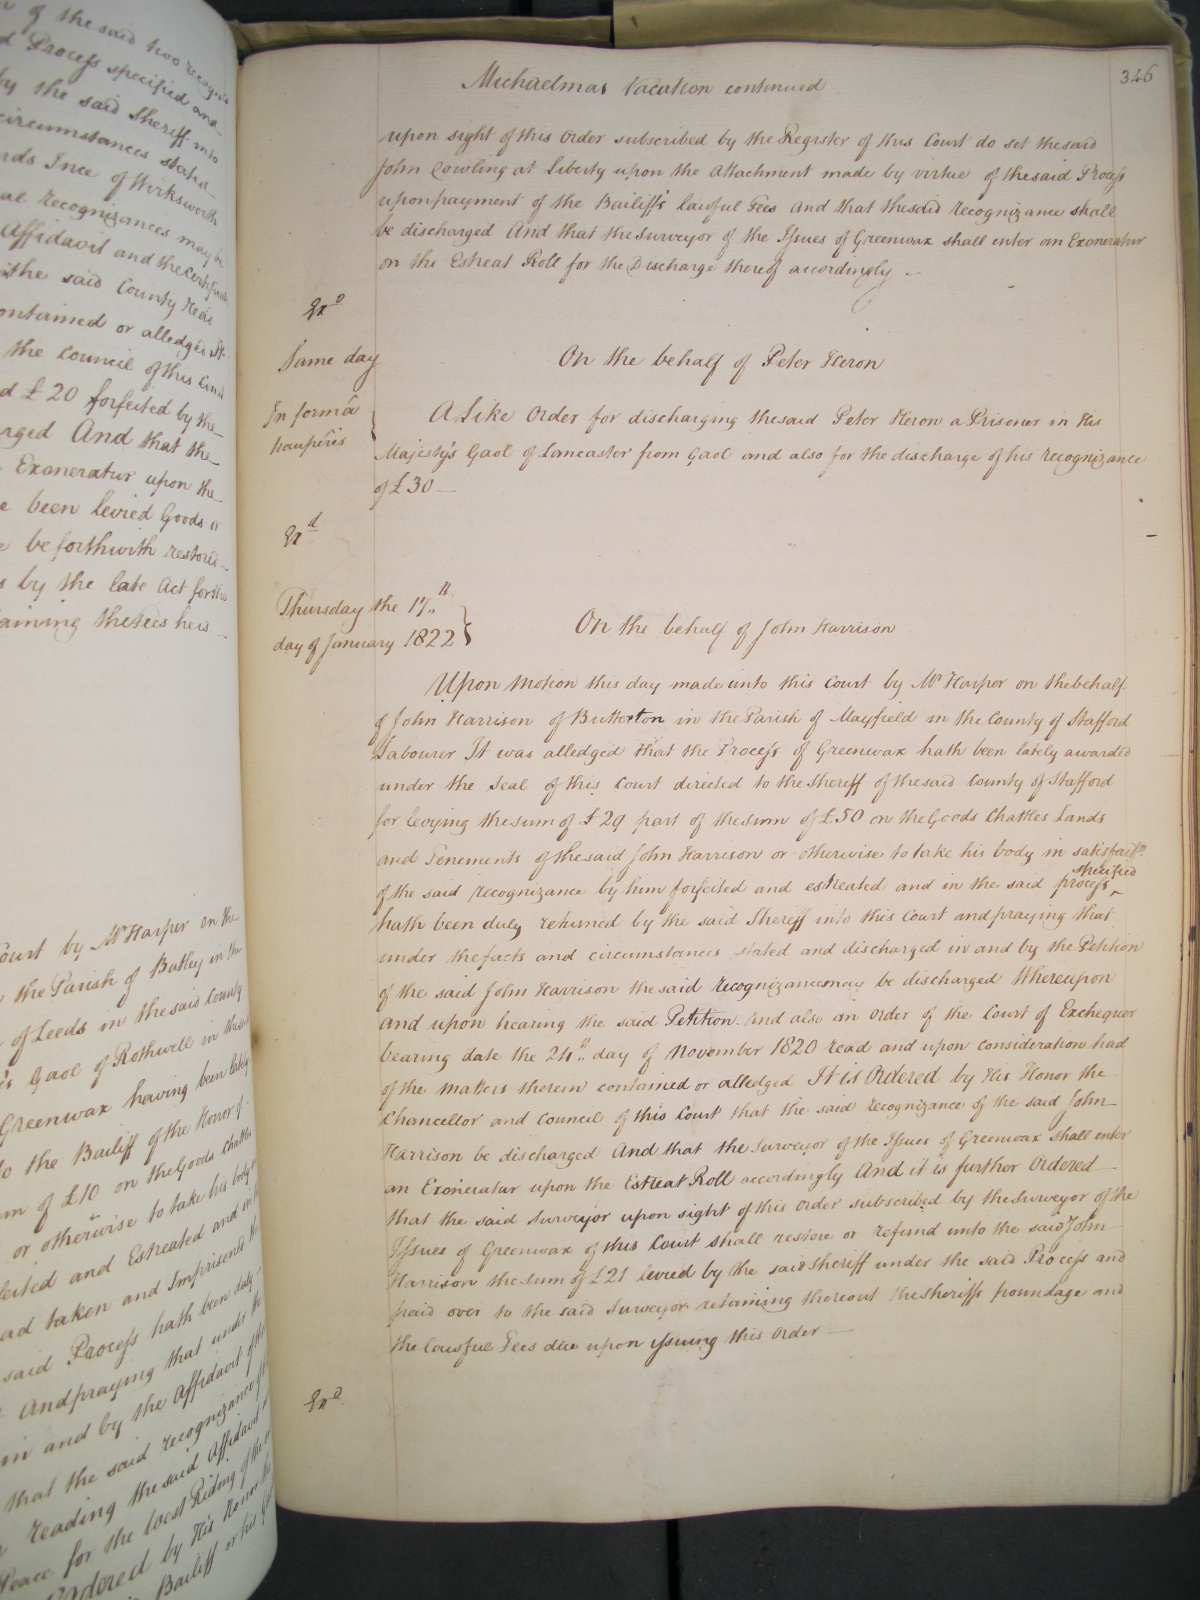 of the said two recogni
Process specified and
by the said Sheriff into
circumstances stated
Ince of Wirksworth
recognizances may be
Affidavit and the Certificate
the said County
contained or alledged It
the Council of this Court
£20 forfeited by the
And that the
Exoneratur upon the
been levied Goods or
be forthwith restored
by the late Act for the
the Fees here
Court by Mr Harper on the
the Parish of Batley in the
of Leeds in the said County
Gaol of Rothwell in the said
Greenwax having been lately
to the Bailiff of the Honor of
of £10 on the Goods Chattles
or otherwise to take his body in
and Estreated and in the
taken and Imprisoned
said Process hath been duly
And praying that under the
in and by the Affidavit of the
that the said recognizance
reading the said Affidavit
Peace for the West Riding of the
Ordered by His Honor the
Bailiff or his
346
Michaelmas Vacation continued
upon sight of this Order subscribed by the Register of this Court do set the said
John Cowling at Liberty upon the Attachment made by virtue of the said Process
upon payment of the Bailiff's lawful Fees And that the said recognizance shall
be discharged And that the Surveyor of the Issues of Greenwax shall enter an Exoneratur
on the Estreat Roll for the Discharge thereof accordingly
Exd
Same day
On the behalf of Peter Heron
In formâ
pauperis
A Like Order for discharging the said Peter Heron a Prisoner in His
Majesty's Gaol of Lancaster from Gaol and also for the discharge of his recognizance
of £30 —
Exd
Thursday the 17th
day of January 1822
On the behalf of John Harrison
Upon Motion this day made unto this Court by Mr Harper on the behalf
of John Harrison of Butterton in the Parish of Mayfield in the County of Stafford
Labourer It was alledged that the Process of Greenwax hath been lately awarded
under the Seal of this Court directed to the Sheriff of the said County of Stafford
for levying the sum of £29 part of the sum of £50 on the Goods Chattles Lands
and Tenements of the said John Harrison or otherwise to take his body in satisfactn
of the said recognizance by him forfeited and estreated and in the said process ^ specified
hath been duly returned by the said Sheriff into this Court and praying that
under the facts and circumstances stated and discharged in and by the Petition
of the said John Harrison the said recognizance may be discharged Whereupon
and upon hearing the said Petition And also an Order of the Court of Exchequer
bearing date the 24th day of November 1820 read and upon consideration had
of the matters therein contained or alledged It is Ordered by His Honor the
Chancellor and Council of this Court that the said recognizance of the said John
Harrison be discharged And that the Surveyor of the Issues of Greenwax shall enter
an Exoneratur upon the Estreat Roll accordingly And it is further Ordered
that the said Surveyor upon sight of this Order subscribed by the Surveyor of the
Issues of Greenwax of this Court shall restore or refund unto the said John
Harrison the sum of £21 levied by the said Sheriff under the said Process and
paid over to the said Surveyor retaining thereout the Sheriffs poundage and
the lawful Fees due upon issuing this Order —
Exd